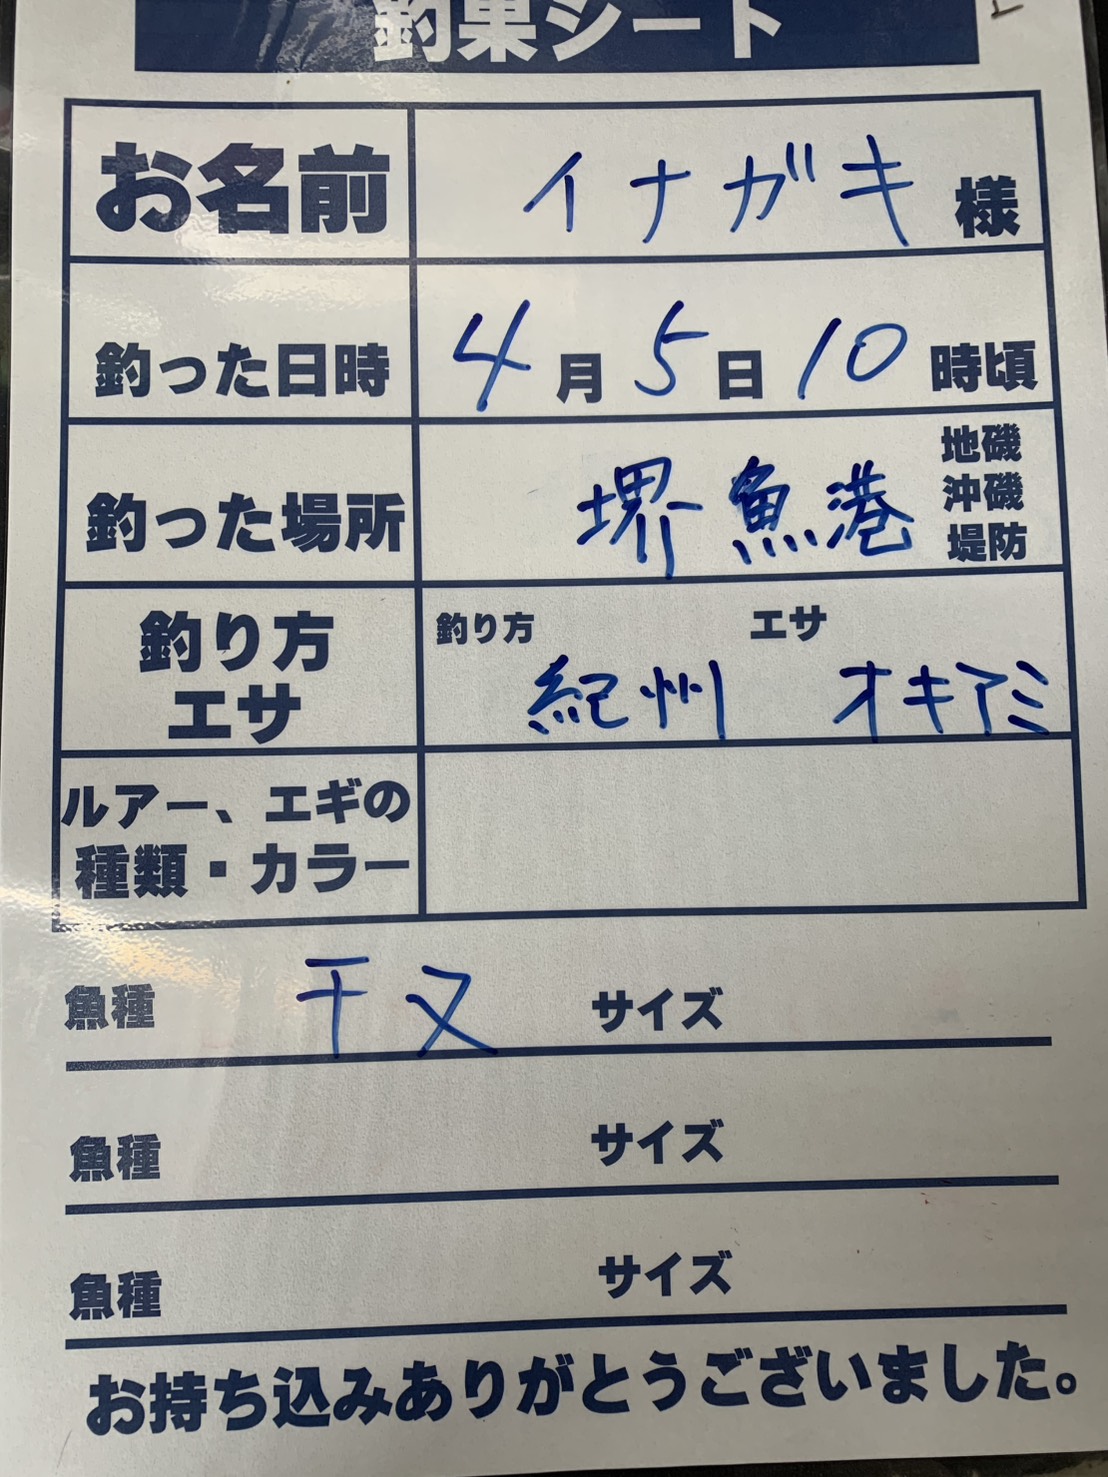 釣果シート
お名前 イナガキ 様
釣った日時 4月5日10時頃
釣った場所 堺魚港 地磯 沖磯 堤防
釣り方 エサ 釣り方 紀州 エサ オキアミ
ルアー、エギの種類・カラー
魚種 チヌ サイズ
魚種 サイズ
魚種 サイズ
お持ち込みありがとうございました。